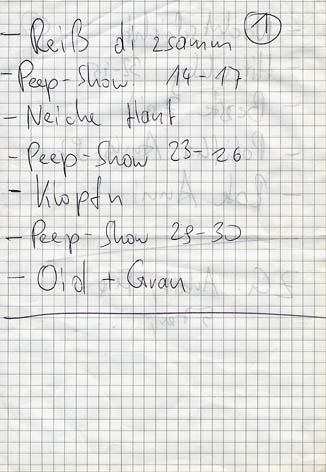 ①
- Reiß di zsamm
- Peep-Show 14-17
- Neiche Haut
- Peep-Show 23-26
- Klopfn
- Peep-Show 29-30
- Oid + Grau